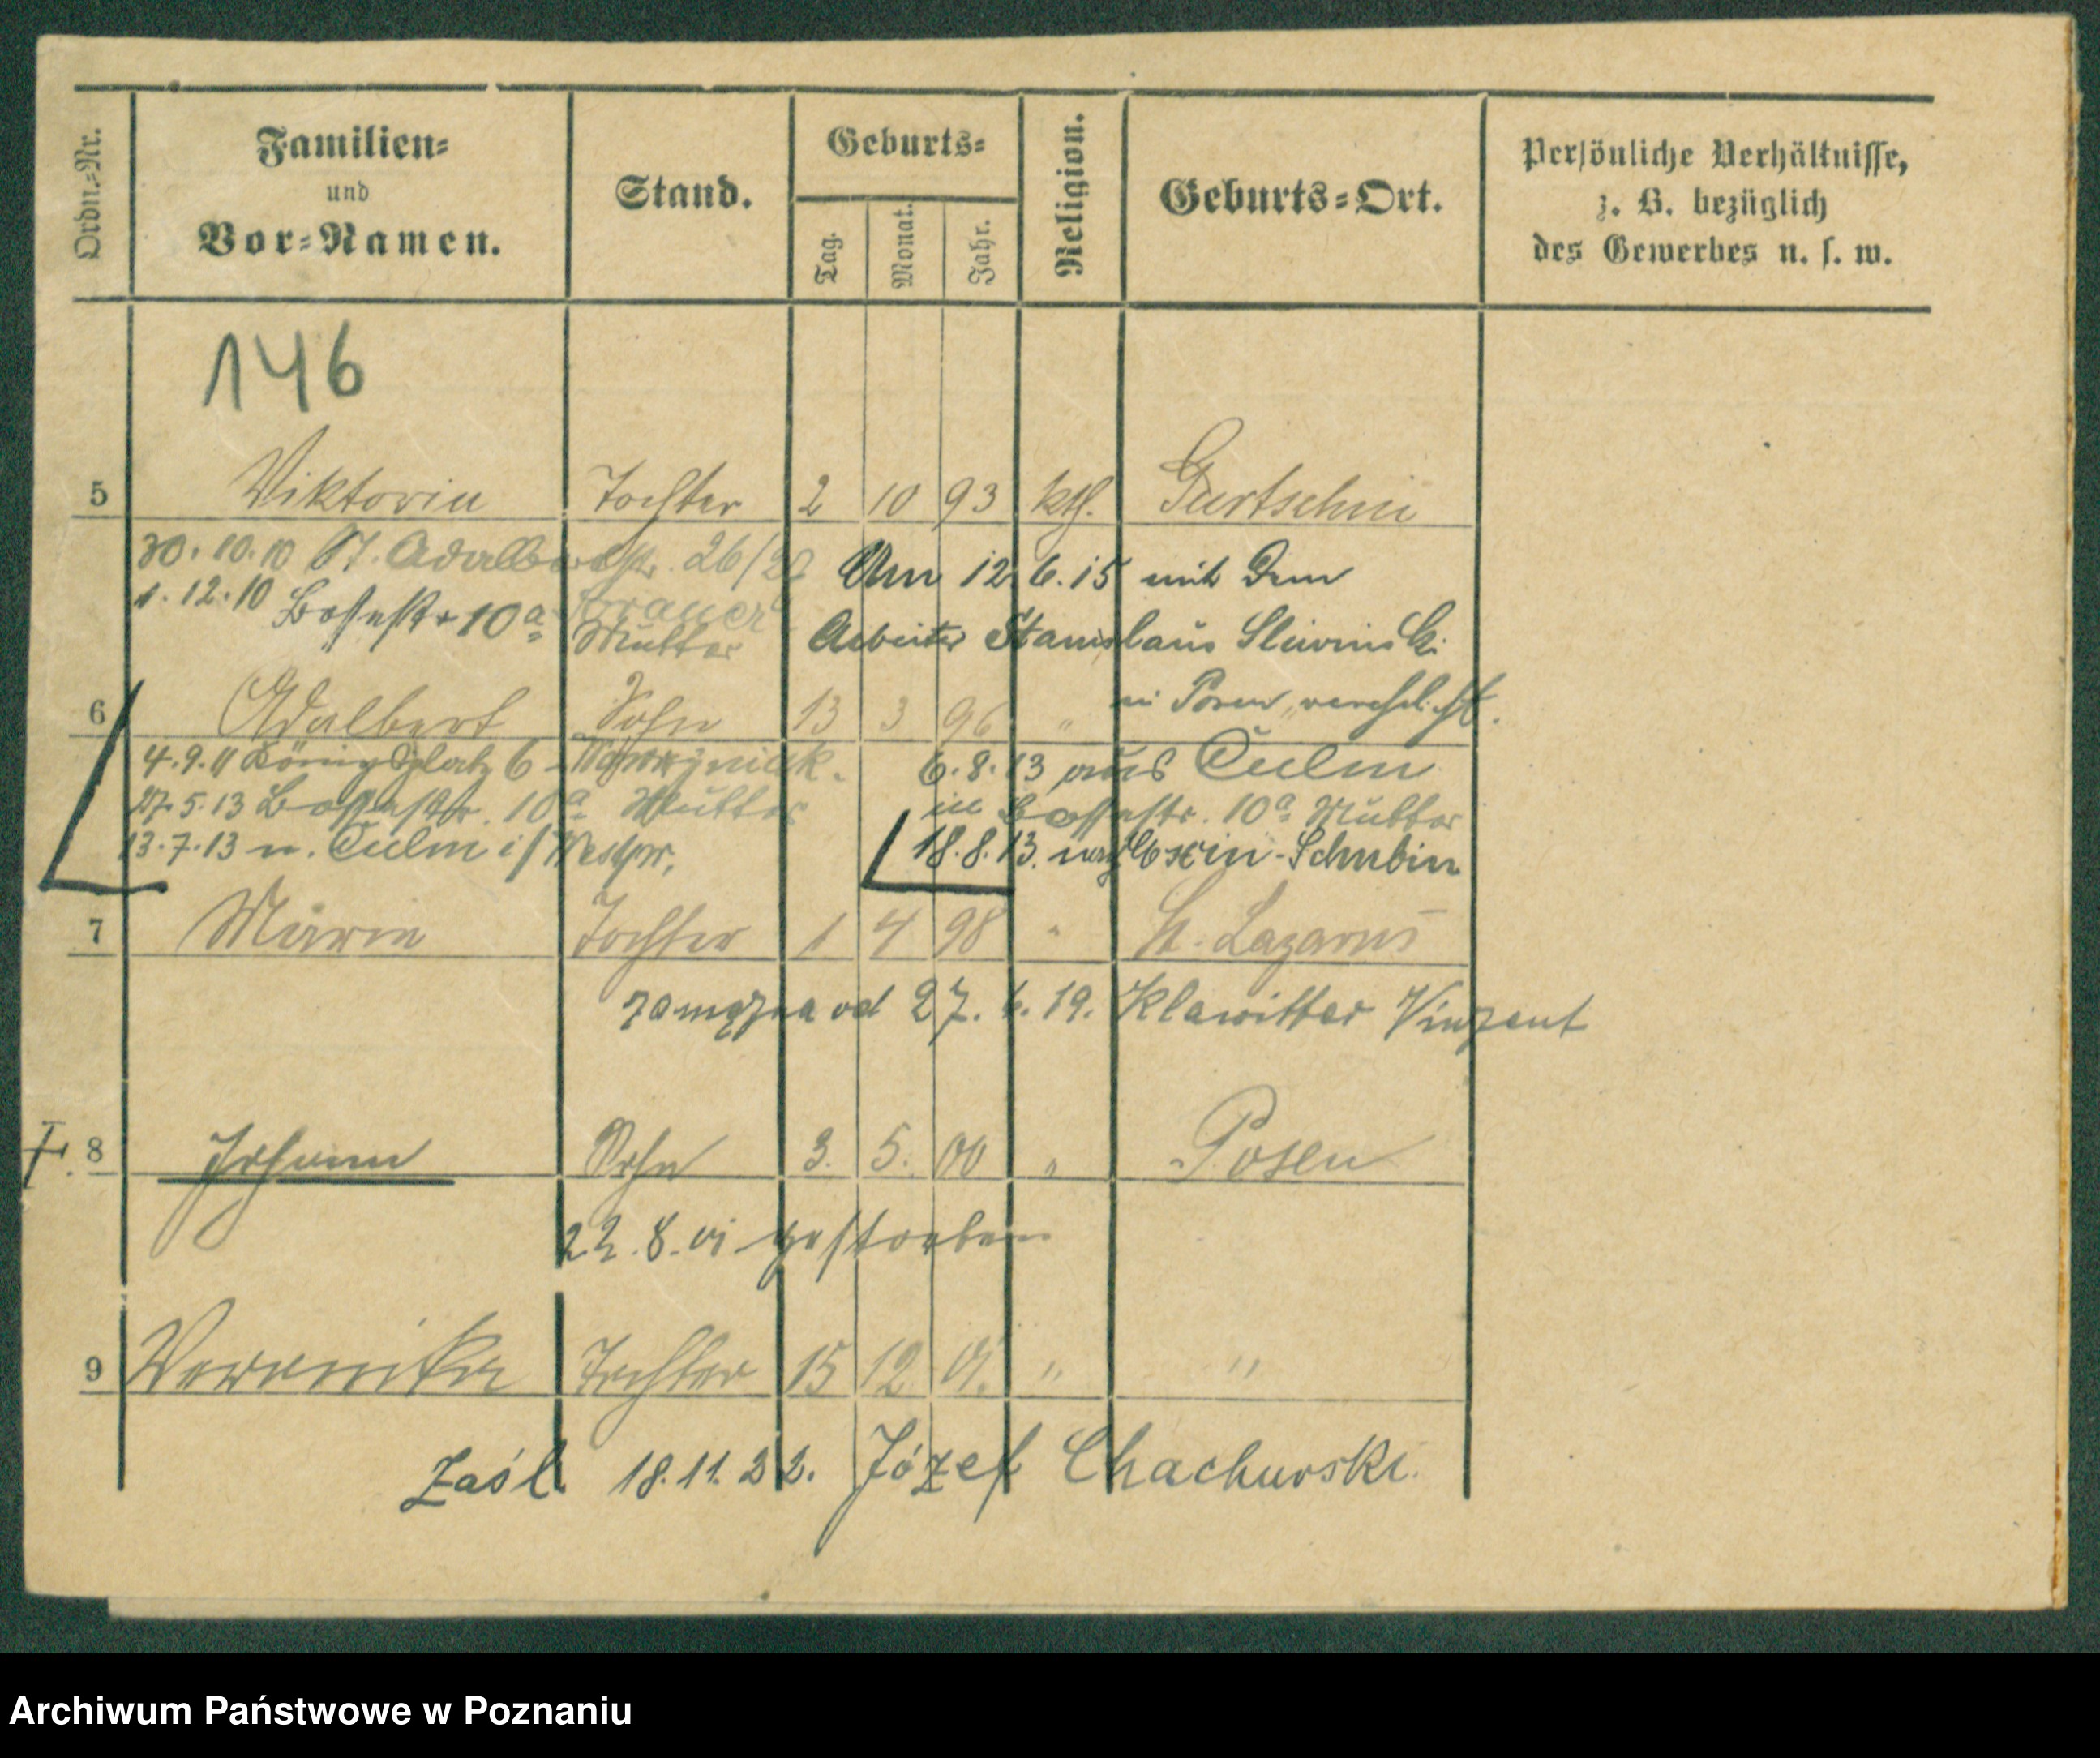 Ordn.-Nr.
Familien-
und
Vor-Namen.
Stand.
Geburts-
Tag.
Monat.
Jahr.
Religion.
Geburts-Ort.
Persönliche Verhältnisse,
z. B. bezüglich
des Gewerbes u. s. w.
146
5 Viktoria Tochter 2 10 93 kth. Gurtschin
30.10.10 St. Adalbertstr. 26/27
1.12.10 Bosestr 10a Mutter
Am 12.6.15 mit dem
Arbeiter Stanislaus Sliwinski
in Posen verehelicht.
6 Adalbert Sohn 13 3 96 "
4.9.11 Königsplatz 6
27.5.13 Bosestr. 10a Mutter
13.7.13 n. Culm i/Westpr.
6.8.13 aus Culm
in Bosestr. 10a Mutter
18.8.13. nach Exin-Schubin
7 Marie Tochter 1 4 98 " St. Lazarus
zamężna od 27. 6. 19. Klawitter Vinzent
8 Johann Sohn 3. 5. 00 " Posen
22.8.01 gestorben
9 Weronika Tochter 15 12 01. " "
Zaśl. 18.11.22. Józef Chachurski
Archiwum Państwowe w Poznaniu